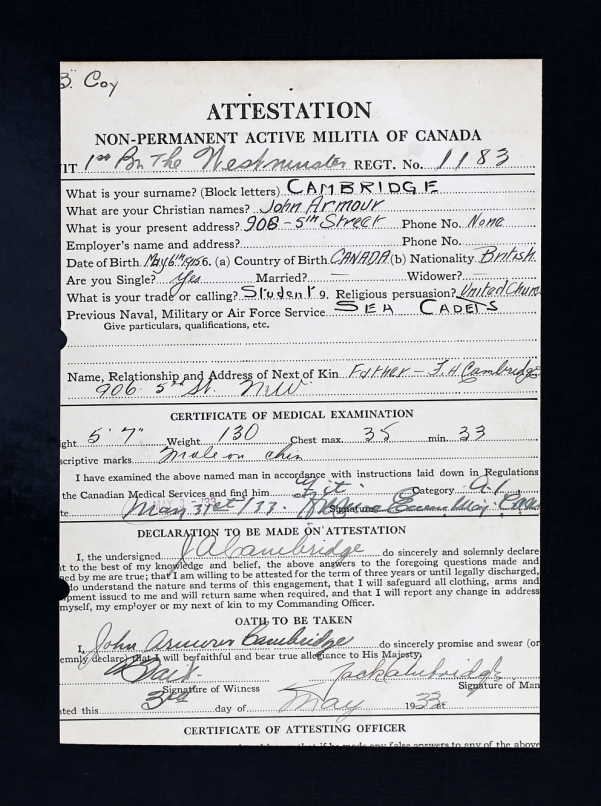 B" Coy
ATTESTATION
NON-PERMANENT ACTIVE MILITIA OF CANADA
IT 1st Bn The Westminster REGT. No. 1183
What is your surname? (Block letters) CAMBRIDGE
What are your Christian names? John Armour
What is your present address? 906 - 5th Street Phone No. None
Employer's name and address? Phone No.
Date of Birth May 6th (a) Country of Birth CANADA (b) Nationality British
Are you Single? Yes Married? — Widower? —
What is your trade or calling? Student 9. Religious persuasion? United Church
Previous Naval, Military or Air Force Service SEA CADETS
Give particulars, qualifications, etc.
Name, Relationship and Address of Next of Kin Father - J.H. Cambridge
906 5th St. N.W.
CERTIFICATE OF MEDICAL EXAMINATION
ight 5' 7" Weight 130 Chest max. 35 min. 33
scriptive marks Mole on chin
I have examined the above named man in accordance with instructions laid down in Regulations
the Canadian Medical Services and find him Fit Category A1
te May 31st/33 Signature
DECLARATION TO BE MADE ON ATTESTATION
I, the undersigned JA Cambridge do sincerely and solemnly declare
t to the best of my knowledge and belief, the above answers to the foregoing questions made and
ned by me are true; that I am willing to be attested for the term of three years or until legally discharged,
do understand the nature and terms of this engagement, that I will safeguard all clothing, arms and
ipment issued to me and will return same when required, and that I will report any change in address
myself, my employer or my next of kin to my Commanding Officer.
OATH TO BE TAKEN
I, John Armour Cambridge do sincerely promise and swear (or
emnly declare) that I will be faithful and bear true allegiance to His Majesty.
Jack Cambridge
Signature of Witness Signature of Man
ted this 3rd day of May 1933 at
CERTIFICATE OF ATTESTING OFFICER
if he made any false answers to any of the above